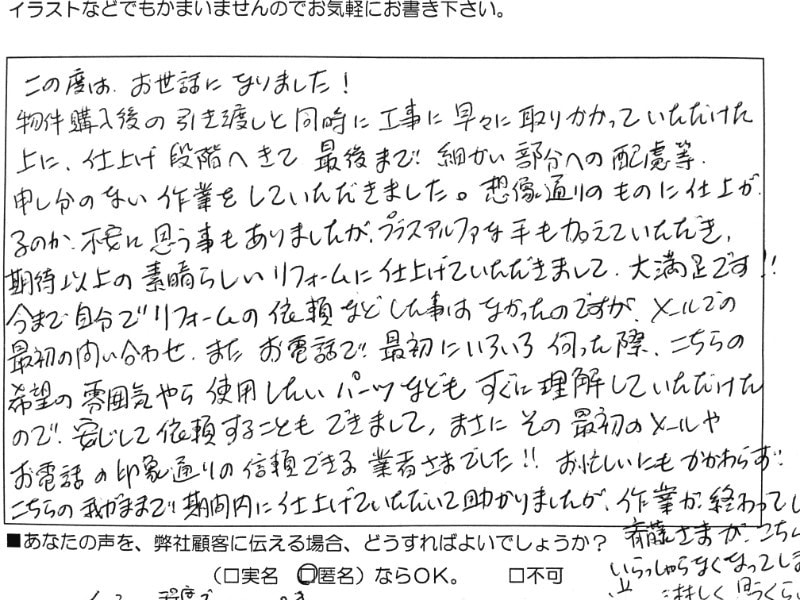 イラストなどでもかまいませんのでお気軽にお書き下さい。
この度は、お世話になりました!
物件購入後の引き渡しと同時に工事に早々に取りかかっていただけた
上に、仕上げ段階へきて最後まで細かい部分への配慮等、
申し分のない作業をしていただきました。想像通りのものに仕上が
るのか、不安に思う事もありましたが、プラスアルファな手も加えていただき、
期待以上の素晴らしいリフォームに仕上げていただきまして、大満足です!!
今まで自分でリフォームの依頼などした事はなかったのですが、メールでの
最初の問い合わせ、また お電話で最初にいろいろ伺った際、こちらの
希望の雰囲気やら使用したいパーツなどもすぐに理解していただけた
ので、安心して依頼することもできまして、まさにその最初のメールや
お電話の印象通りの信頼できる業者さまでした!! お忙しいにもかかわらず
こちらの我がままで期間内に仕上げていただいて助かりましたが、作業が終わってし
■あなたの声を、弊社顧客に伝える場合、どうすればよいでしょうか? 斎藤さまが、こちら
(□実名 □匿名)ならOK。 □不可 いらっしゃらなくなってしま
淋しく